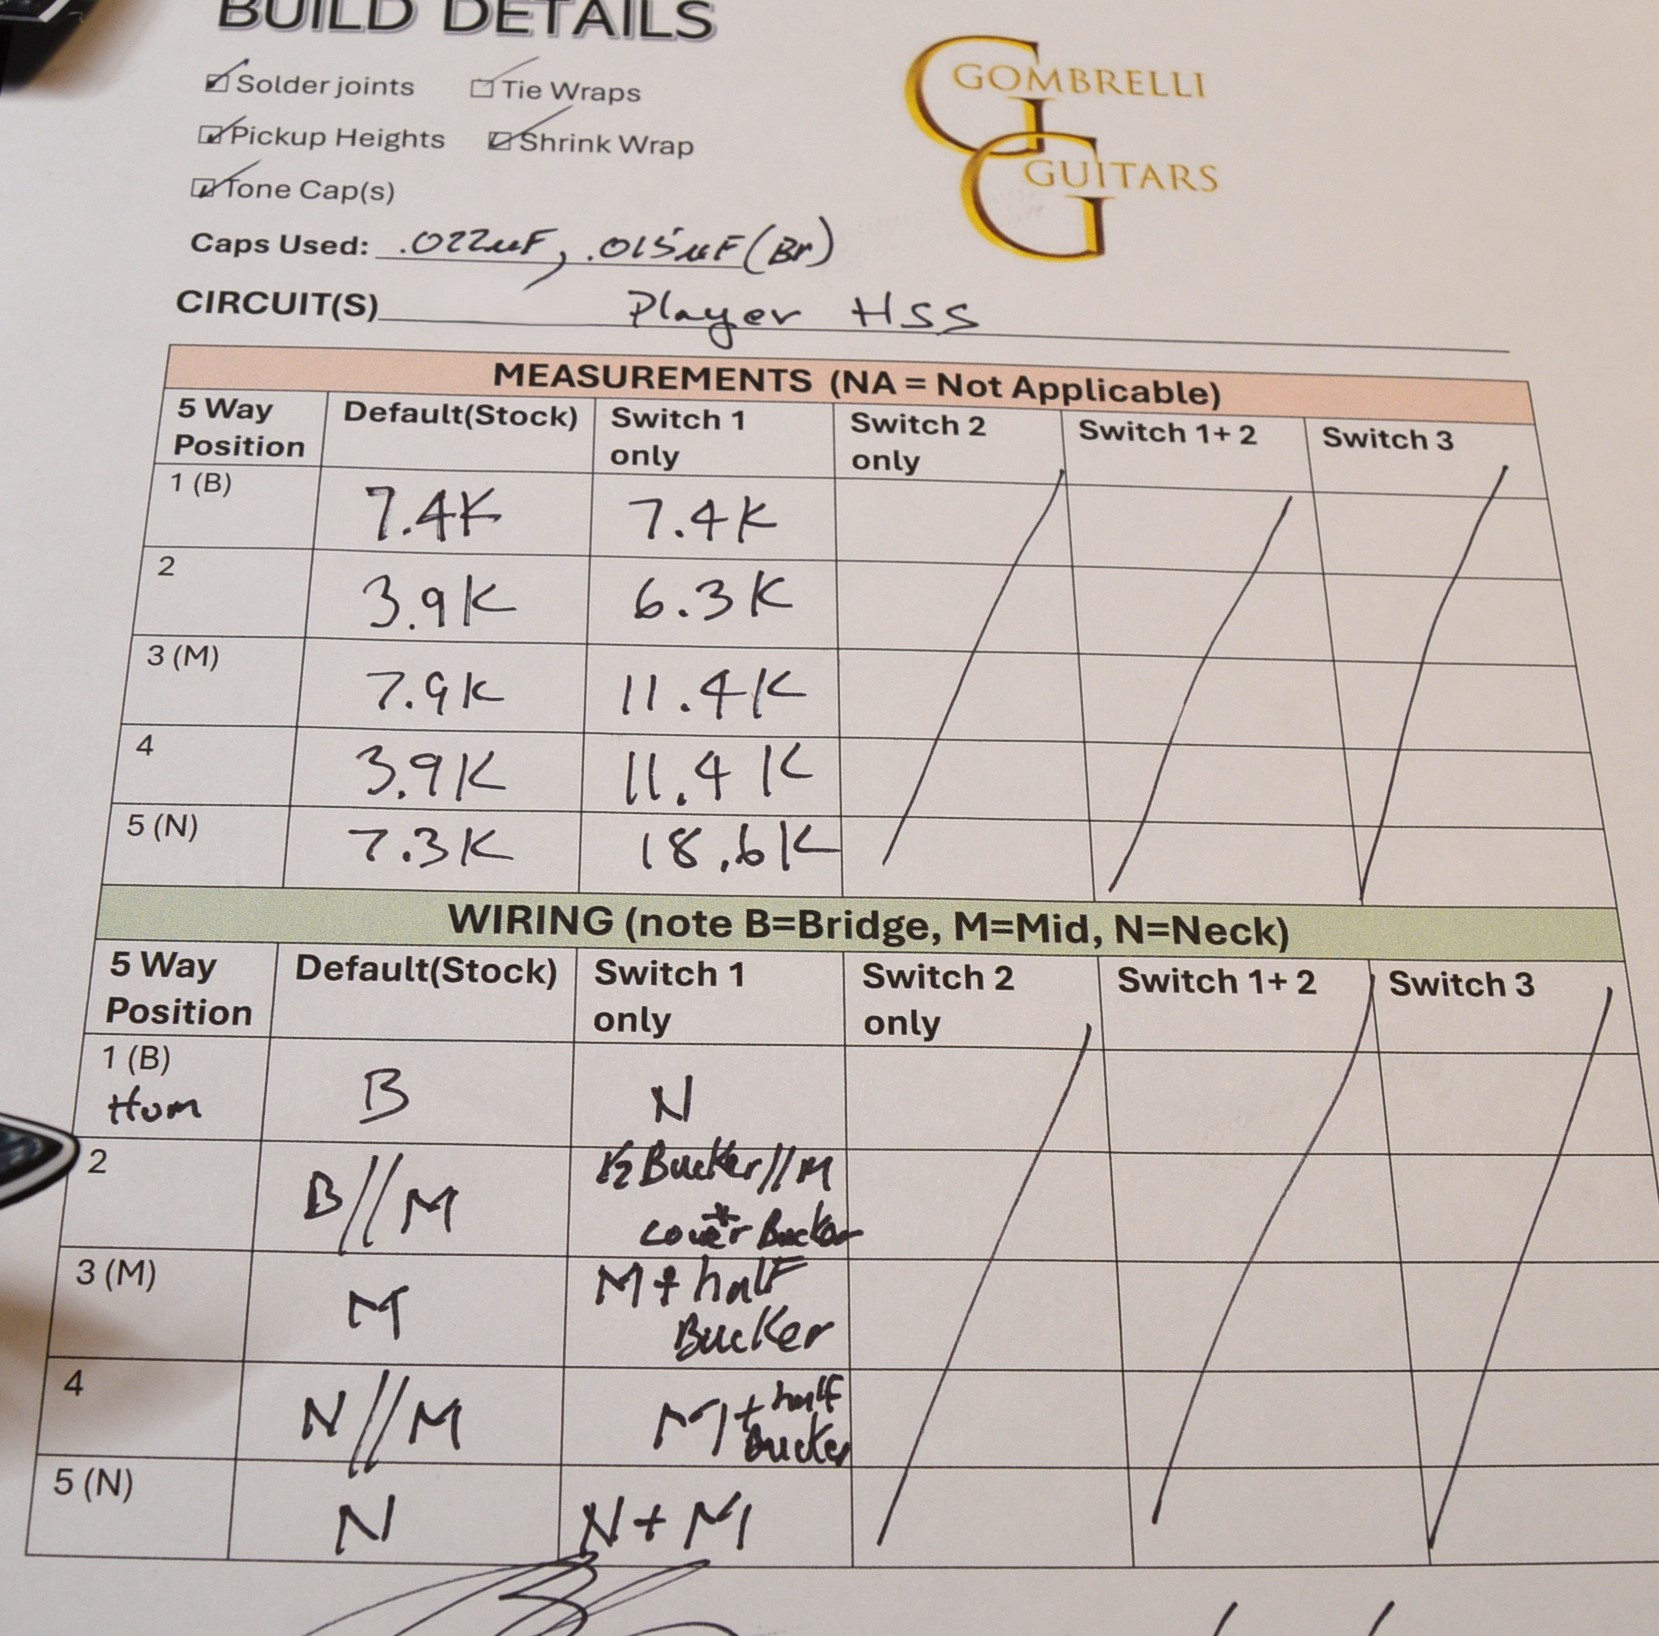 BUILD DETAILS
GOMBRELLI
GUITARS
Solder joints Tie Wraps
Pickup Heights Shrink Wrap
Tone Cap(s)
Caps Used: .022uF, .015uF (Br)
CIRCUIT(S) Player HSS
MEASUREMENTS (NA = Not Applicable)
5 Way Position Default(Stock) Switch 1 only Switch 2 only Switch 1+ 2 Switch 3
1 (B) 7.4K 7.4K
2 3.9K 6.3K
3 (M) 7.9K 11.4K
4 3.9K 11.4K
5 (N) 7.3K 18.6K
WIRING (note B=Bridge, M=Mid, N=Neck)
5 Way Position Default(Stock) Switch 1 only Switch 2 only Switch 1+ 2 Switch 3
1 (B) Hum B N
2 B//M 1/2 Bucker//M * cover Bucker
3 (M) M M + half Bucker
4 N//M M + half Bucker
5 (N) N N + M